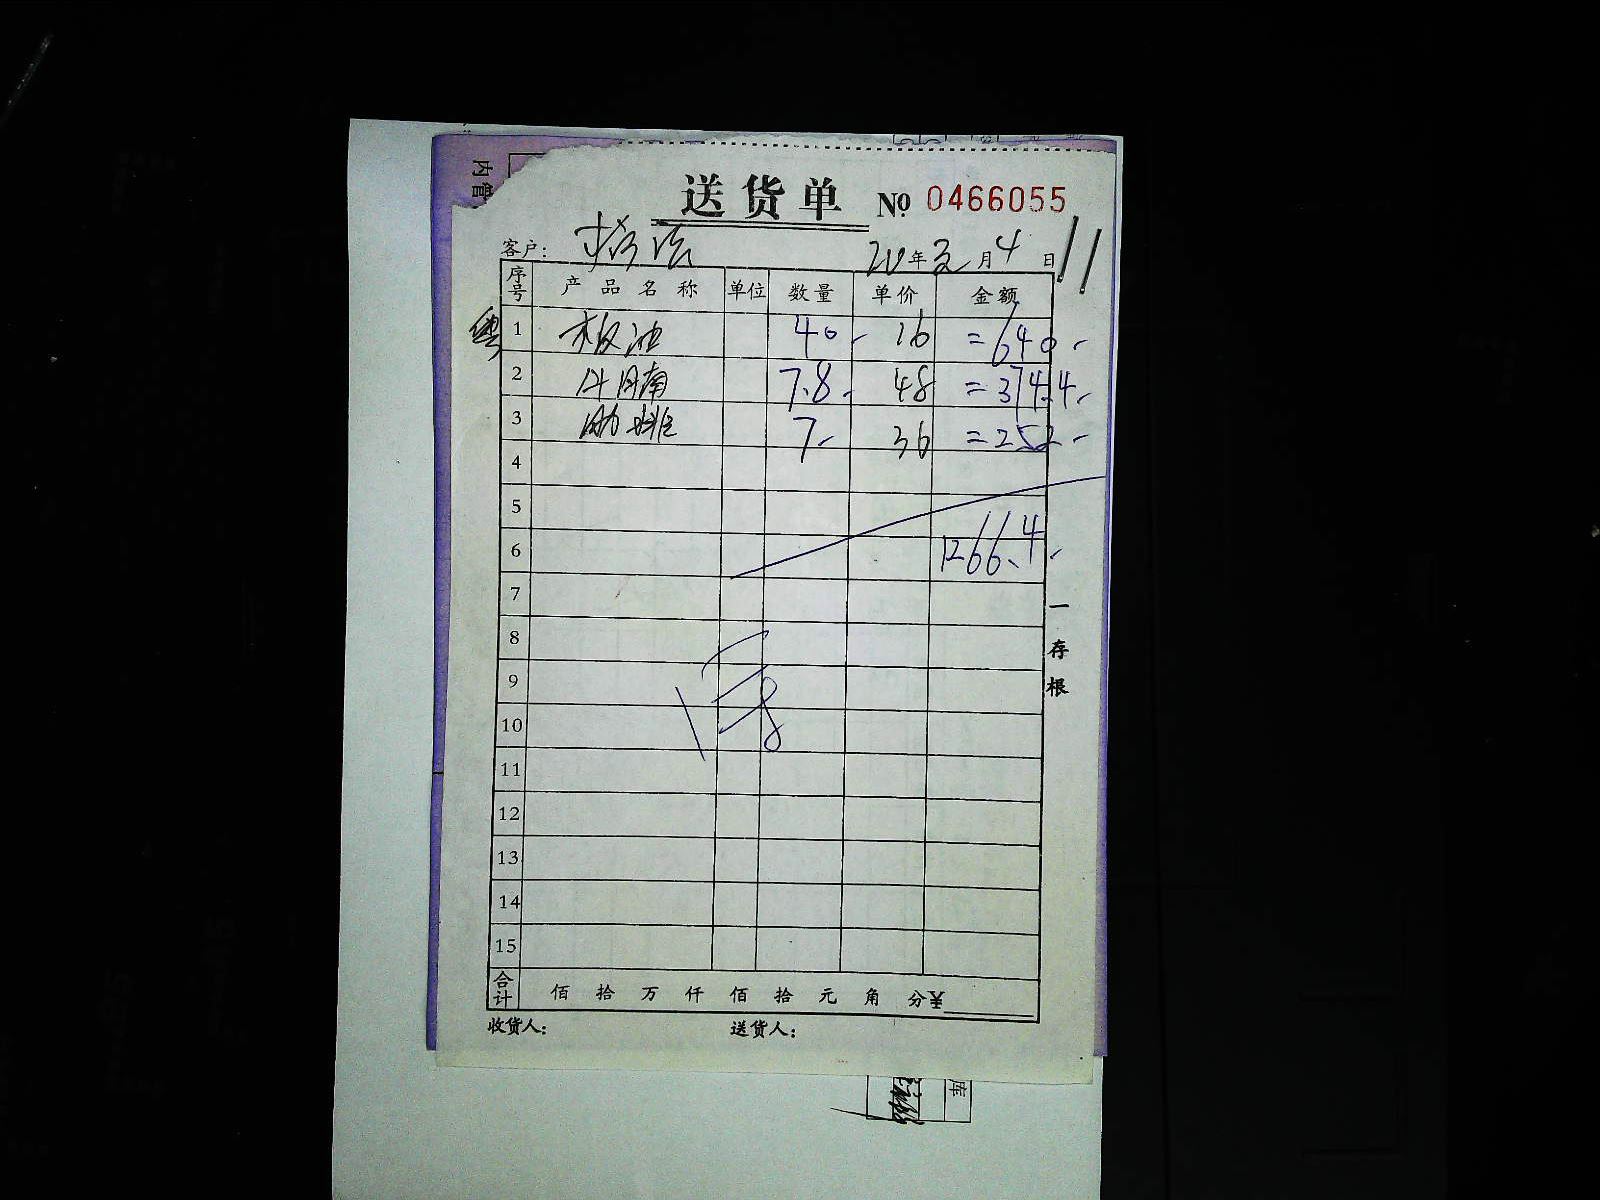 内管
送货单 № 0466055
客户： 20 年 月 4 日
序号 产品名称 单位 数量 单价 金额
1 板油 40 - 16 = 640 -
2 牛腩 7.8 - 48 = 374.4 -
3 肋排 7 - 36 = 252 -
4
5
6 1266.4 -
7
8
9
10
11
12
13
14
15
合计 佰 拾 万 仟 佰 拾 元 角 分¥
收货人： 送货人：
一存根
库